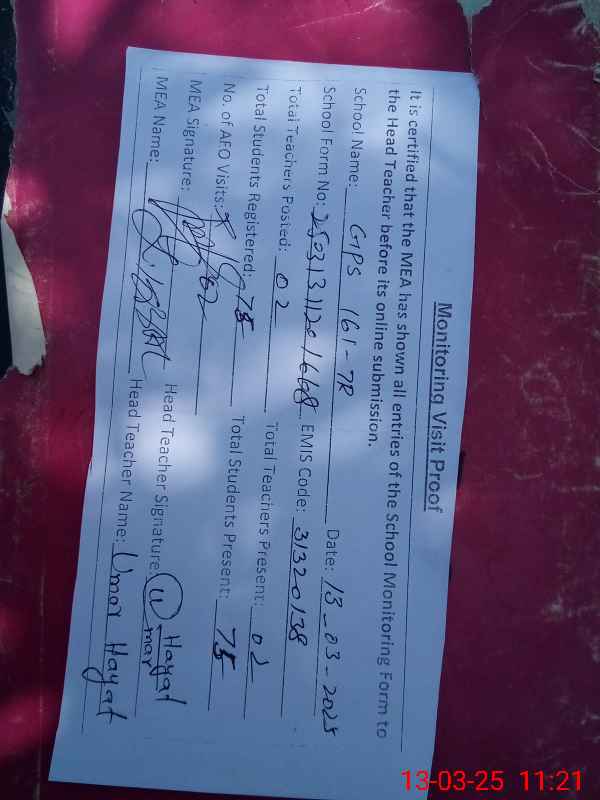 Monitoring Visit Proof
It is certified that the MEA has shown all entries of the School Monitoring Form to
the Head Teacher before its online submission.
School Name: GPS 161-7R Date: 13-03-2025
School Form No: 25031311201668 EMIS Code: 31320138
Total Teachers Posted: 02 Total Teachers Present: 02
Total Students Registered: 75 Total Students Present: 75
No. of AFO Visits: 02
MEA Signature: Head Teacher Signature: Umar Hayat
MEA Name: Head Teacher Name: Umar Hayat
13-03-25 11:21